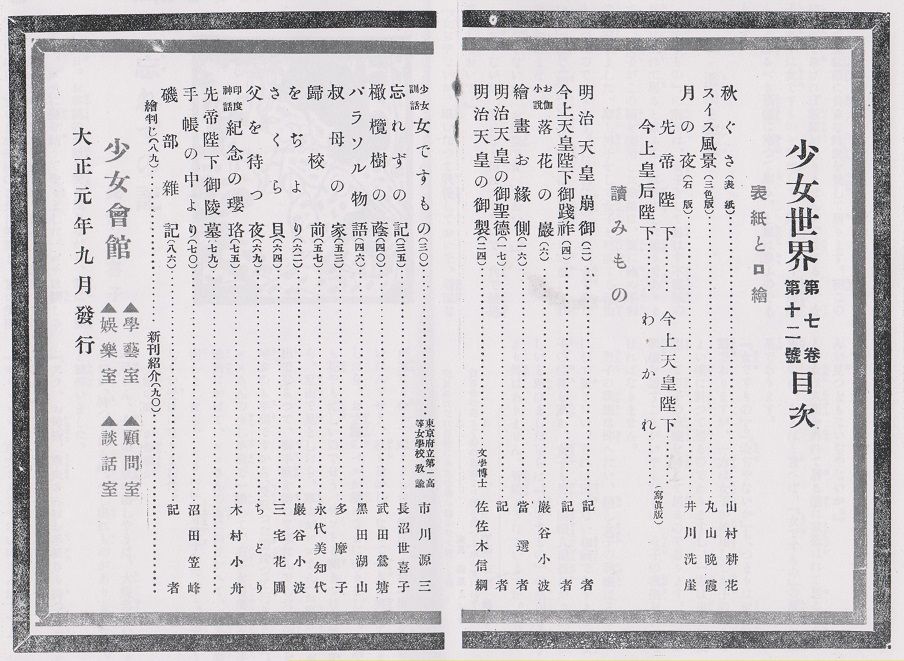 少女世界 第七卷第十二號 目次
表紙と口繪
秋ぐさ(表紙)……山村耕花
スイス風景(三色版)……丸山晩霞
月の夜(石版)……井川洗崖
先帝陛下……今上天皇陛下
今上皇后陛下……わかれ……(寫眞版)
讀みもの
明治天皇崩御(二)……記者
今上天皇陛下御踐祚(四)……記者
お伽小說 落花の巖(六)……巖谷小波
繪畫お緣側(一六)……當選者
明治天皇の御聖德(一七)……記者
明治天皇の御製(二四)……文學博士 佐佐木信綱
少女訓話 女ですもの(三〇)……東京府立第一高等女學校教諭 市川源三
忘れずの記(三五)……長沼世喜子
橄欖樹の蔭(四〇)……武田鶯塘
パラソル物語(四六)……黑田湖山
叔母の家(五三)……多摩子
歸校前(五七)……永代美知代
をぢより(六二)……巖谷小波
さくら貝(六四)……三宅花圃
父を待つ夜(六九)……ちどり
印度神話 紀念の瓔珞(七五)……木村小舟
先帝陛下御陵墓(七九)
手帳の中より(七〇)……沼田笠峰
磯部雜記(八六)……記者
繪判じ(八九)……新刊紹介(九〇)……
少女會館 ▲學藝室 ▲顧問室
▲娛樂室 ▲談話室
大正元年九月發行